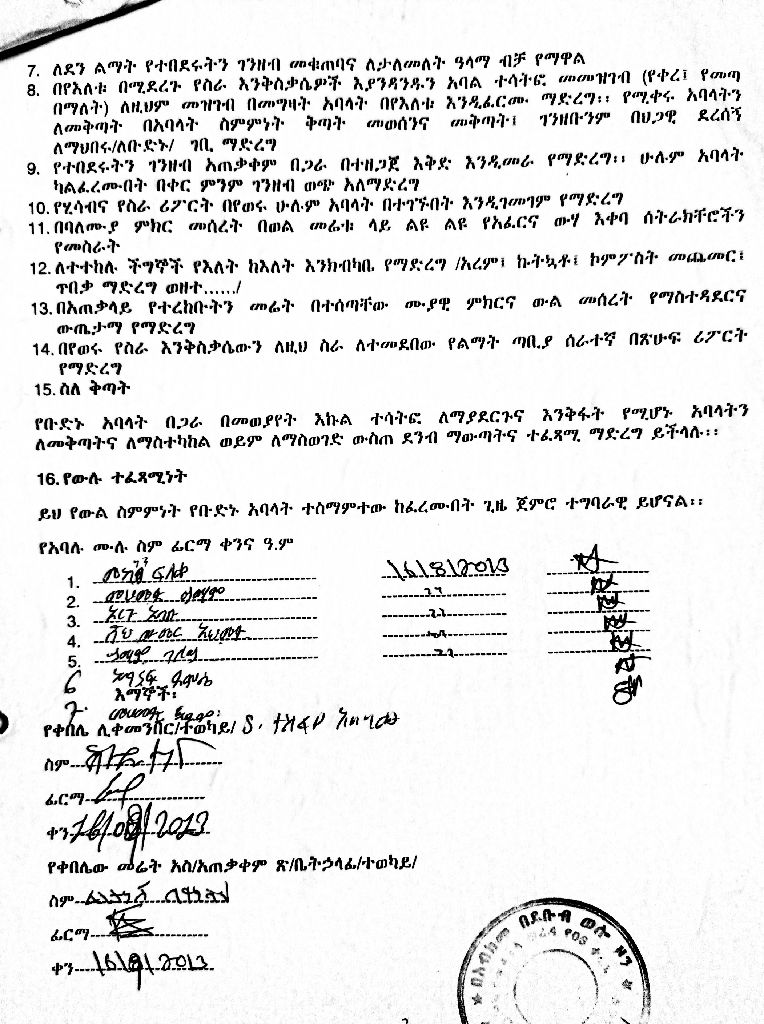 7. ለደን ልማት የተበደሩትን ገንዘብ መቁጠባና ለታለመለት ዓላማ ብቻ የማዋል
8. በየእለቱ በሚደረጉ የስራ እንቅስቃሴዎች እያንዳንዱን አባል ተሳትፎ መመዝገብ (የቀረ፤ የመጣ
በማለት) ለዚህም መዝገብ በመግዛት አባላት በየእለቱ እንዲፈርሙ ማድረግ፡፡ የሚቀሩ አባላትን
ለመቅጣት በአባላት ስምምነት ቅጣት መወሰንና መቅጣት፤ ገንዘቡንም በህጋዊ ደረሰኝ
ለማህበሩ/ለቡድኑ/ ገቢ ማድረግ
9. የተበደሩትን ገንዘብ አጠቃቀም በጋራ በተዘጋጀ እቅድ እንዲመራ የማድረግ፡፡ ሁሉም አባላት
ካልፈረሙበት በቀር ምንም ገንዘብ ወጭ አለማድረግ
10. የሂሳብና የስራ ሪፖርት በየወሩ ሁሉም አባላት በተገኙበት እንዲገመገም የማድረግ
11. በባለሙያ ምክር መሰረት በወል መሬቱ ላይ ልዩ ልዩ የአፈርና ውሃ እቀባ ሰትራክቸሮችን
የመስራት
12. ለተተከሉ ችግኞች የእለት ከእለት እንክብካቤ የማድረግ /አረም፤ ኩትኳቶ፤ ኮምፖስት መጨመር፤
ጥበቃ ማድረግ ወዘተ....../
13. በአጠቃላይ የተረከቡትን መሬት በተሰጣቸው ሙያዊ ምክርና ውል መሰረት የማስተዳደርና
ውጤታማ የማድረግ
14. በየወሩ የስራ እንቅስቃሴውን ለዚህ ስራ ለተመደበው የልማት ጣቢያ ሰራተኛ በጽሁፍ ሪፖርት
የማድረግ
15. ስለ ቅጣት
የቡድኑ አባላት በጋራ በመወያየት እኩል ተሳትፎ ለማያደርጉና እንቅፋት የሚሆኑ አባላትን
ለመቅጣትና ለማስተካከል ወይም ለማስወገድ ውስጠ ደንብ ማውጣትና ተፈጻሚ ማድረግ ይችላሉ፡፡
16. የውሉ ተፈጻሚነት
ይህ የውል ስምምነት የቡድኑ አባላት ተስማምተው ከፈረሙበት ጊዜ ጀምሮ ተግባራዊ ይሆናል፡፡
የአባሉ ሙሉ ስም ፊርማ ቀንና ዓ.ም
1. 16/8/2013
2.
3.
4.
5.
6
እማኞች፡
7.
የቀበሌ ሊቀመንበር/ተወካይ/
ስም
ፊርማ
ቀን 16/08/2013
የቀበሌው መሬት አስ/አጠቃቀም ጽ/ቤትኃላፊ/ተወካይ/
ስም
ፊርማ
ቀን 16/8/2013
በደቡብ ወሎ ዞን